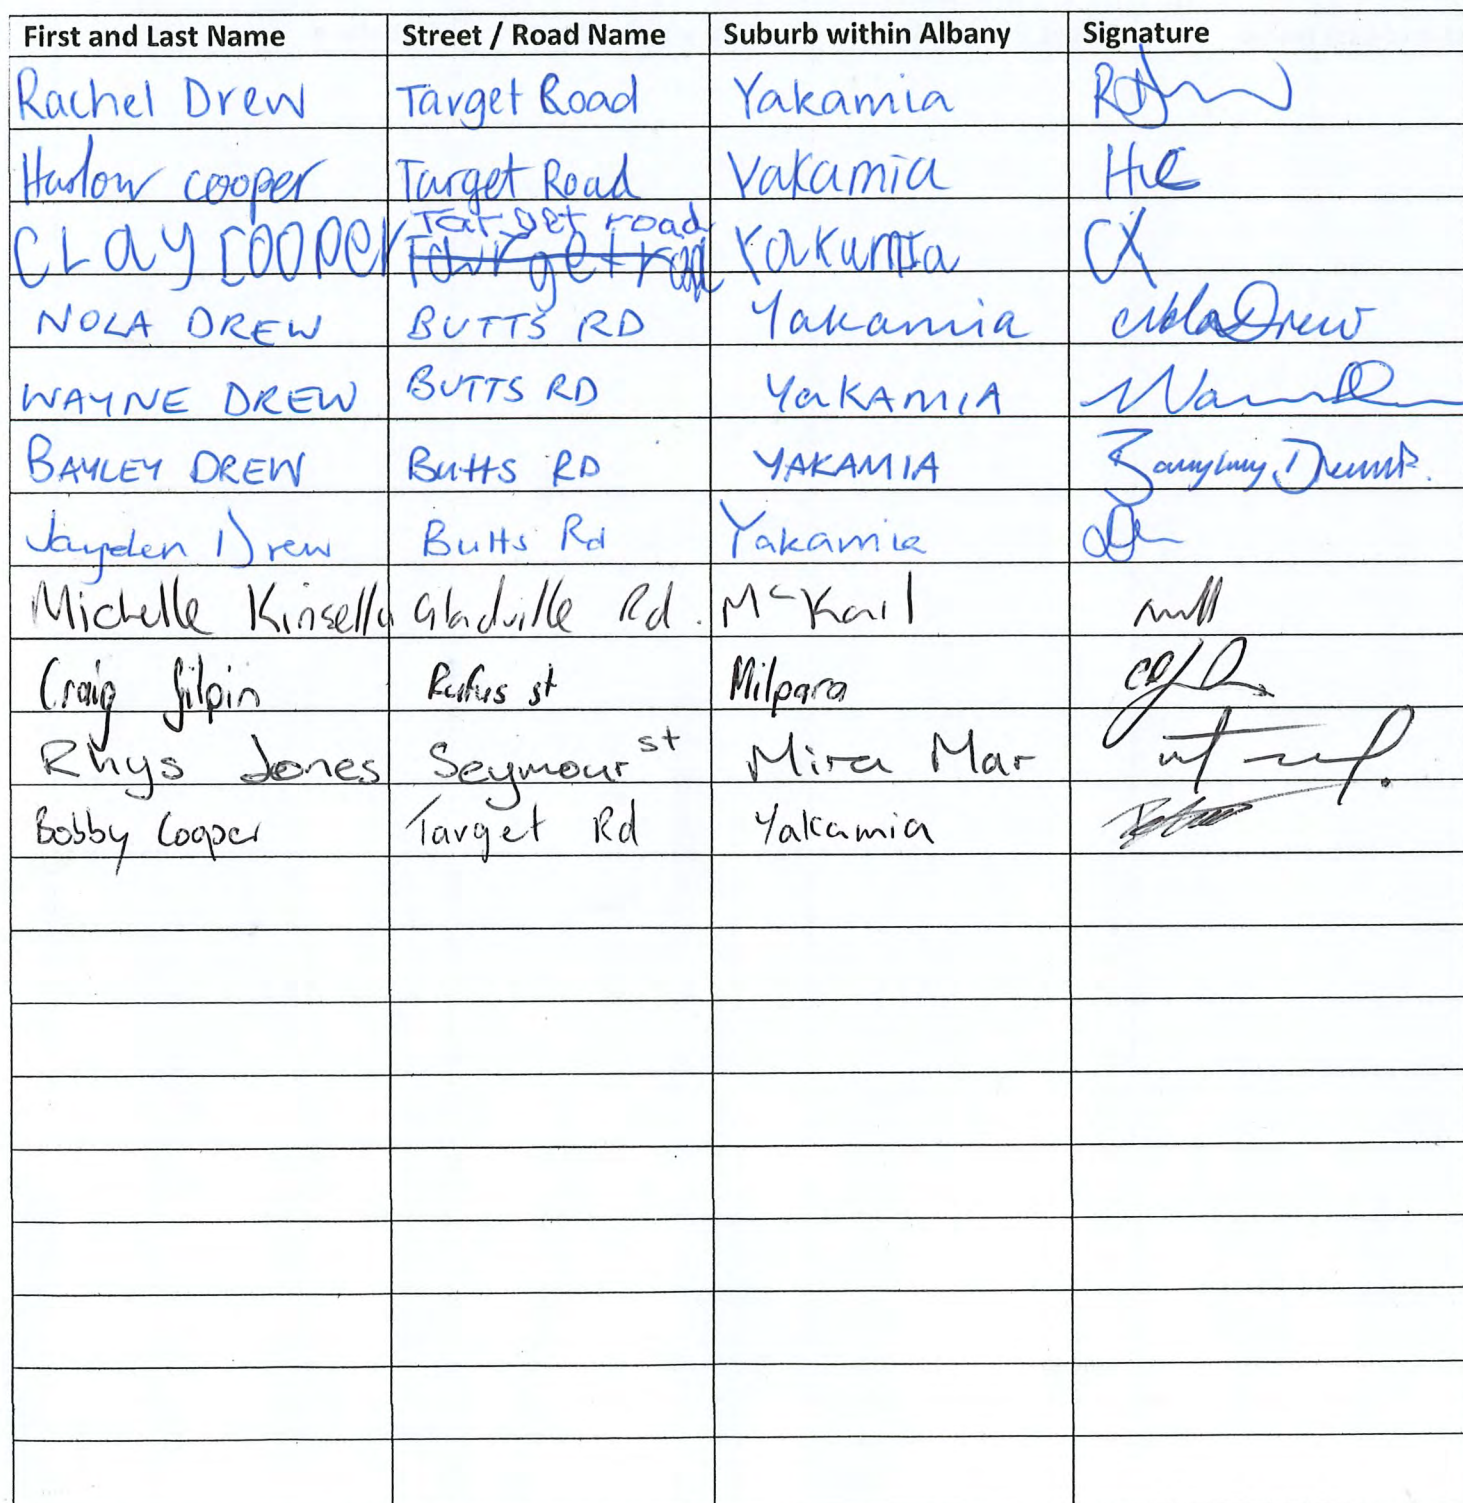 First and Last Name Street / Road Name Suburb within Albany Signature
Rachel Drew Target Road Yakamia
Harlow cooper Target Road Yakamia HC
Target road
CLay cooper Yakumia
NOLA DREW BUTTS RD Yakamia Nola Drew
WAYNE DREW BUTTS RD YaKAMIA
BAYLEY DREW Butts RD YAKAMIA
Jayden Drew Butts Rd Yakamia
Michelle Kinsella Gladville Rd. McKail
Craig Gilpin Rufus st Milpara
Rhys Jones Seymour st Mira Mar
Bobby Cooper Target Rd Yakamia